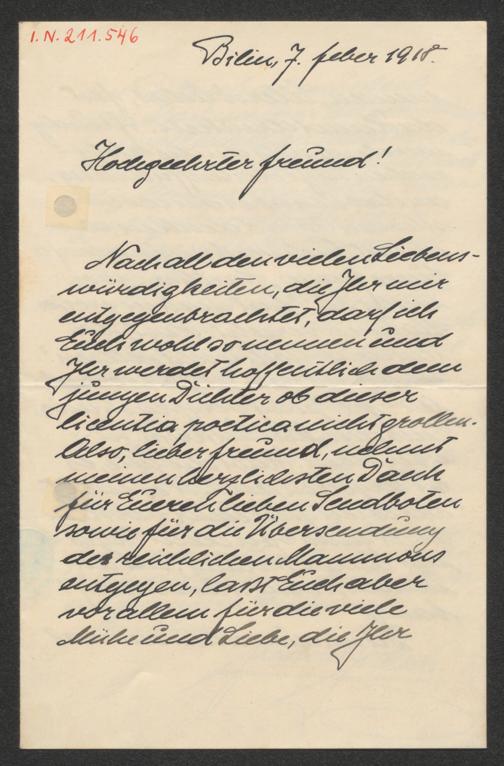 I.N. 211.546
Bilin, 7. feber 1918.
Hochgeehrter freund!
Nach all den vielen Liebens-
würdigkeiten, die Ihr mir
entgegenbrachtet, darf ich
Euch wohl so nennen und
Ihr werdet hoffentlich dem
jungen Dichter ob dieser
licentia poetica nicht grollen.
Also, lieber freund, nehmt
meinen herzlichsten Dank
für Eueren lieben Sendboten
sowie für die Übersendung
des reichlichen Mammons
entgegen, lasst Euch aber
vor allem für die viele
Mühe und Liebe, die Ihr